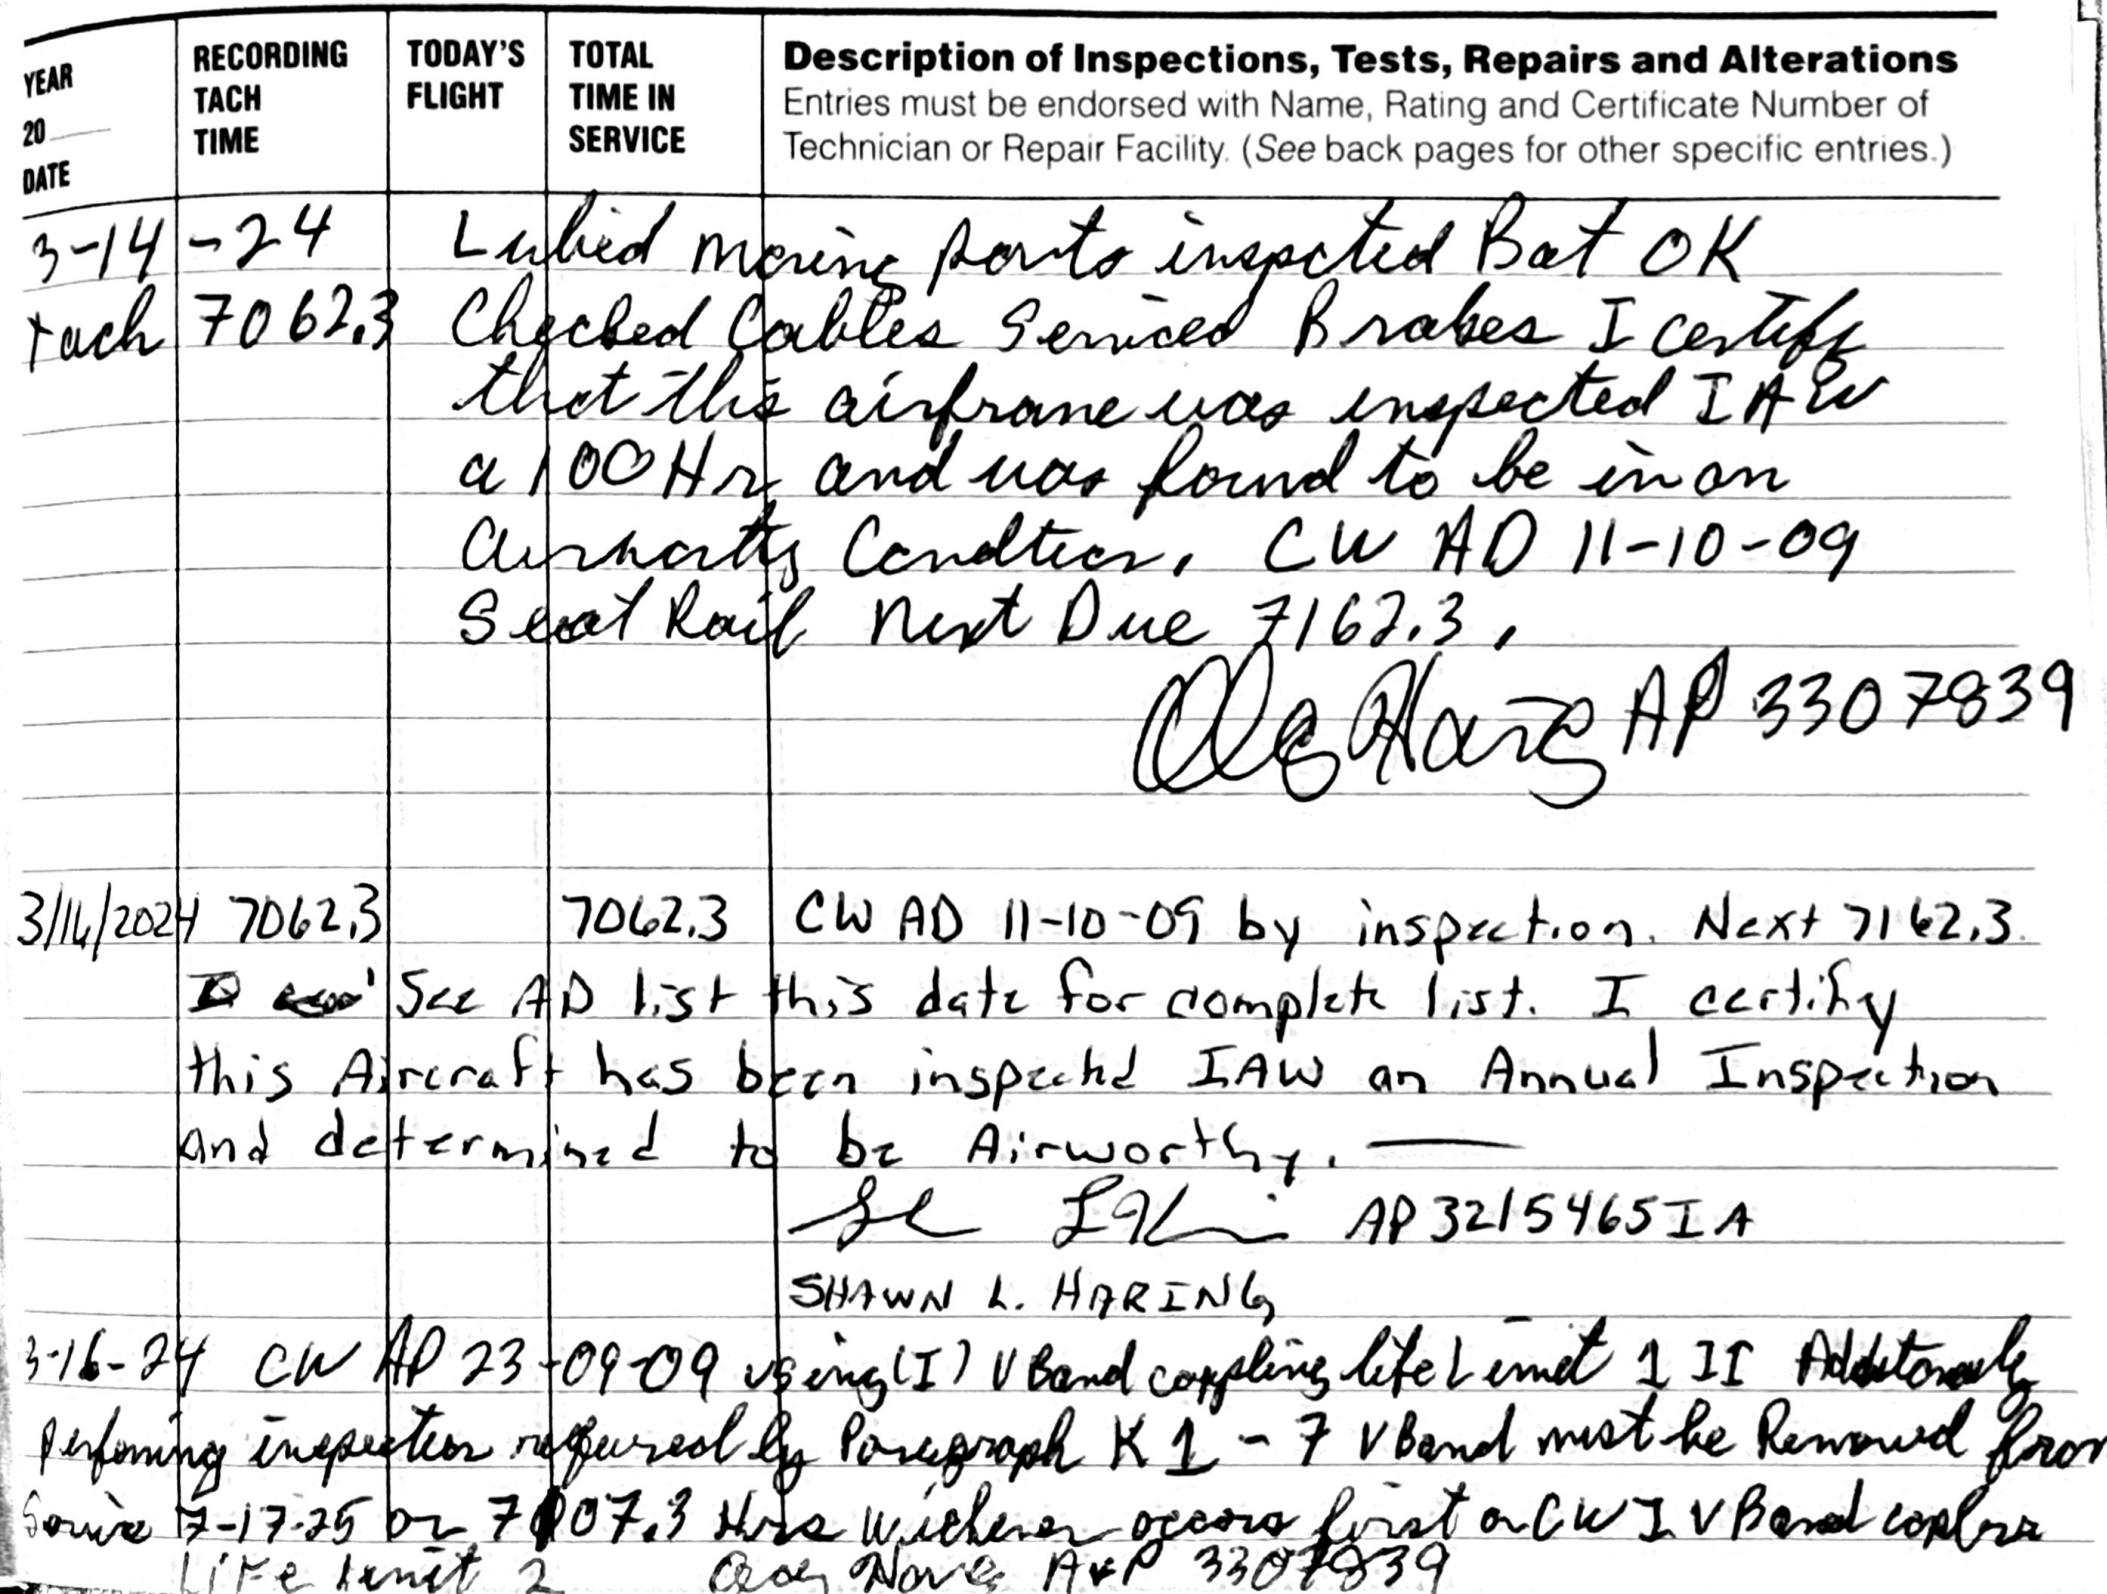 YEAR 20 DATE
RECORDING TACH TIME
TODAY'S FLIGHT
TOTAL TIME IN SERVICE
Description of Inspections, Tests, Repairs and Alterations
Entries must be endorsed with Name, Rating and Certificate Number of
Technician or Repair Facility. (See back pages for other specific entries.)
3-14-24 Lubed moving parts inspected Bat OK
tach 7062.3 Checked Cables Serviced Brakes I certify
that this airframe was inspected IAW
a 100 Hr and was found to be in an
Airworthy Condition. CW AD 11-10-09
Seat Rail Next Due 7162.3.
AP 3307839
3/14/2024 7062.3 7062.3 CW AD 11-10-09 by inspection. Next 7162.3.
See AD list this date for complete list. I certify
this Aircraft has been inspected IAW an Annual Inspection
and determined to be Airworthy.
AP 3215465 IA
SHAWN L. HARING
3-16-24 CW AD 23-09-09 using (I) V Band coupling life Limit 1 II Additionally
Performing inspection required by Paragraph K 1 - 7 V Band must be Removed from
Service 7-17-25 or 7107.3 Hrs first or CW I V Band
Life Limit 2 A&P 3307839